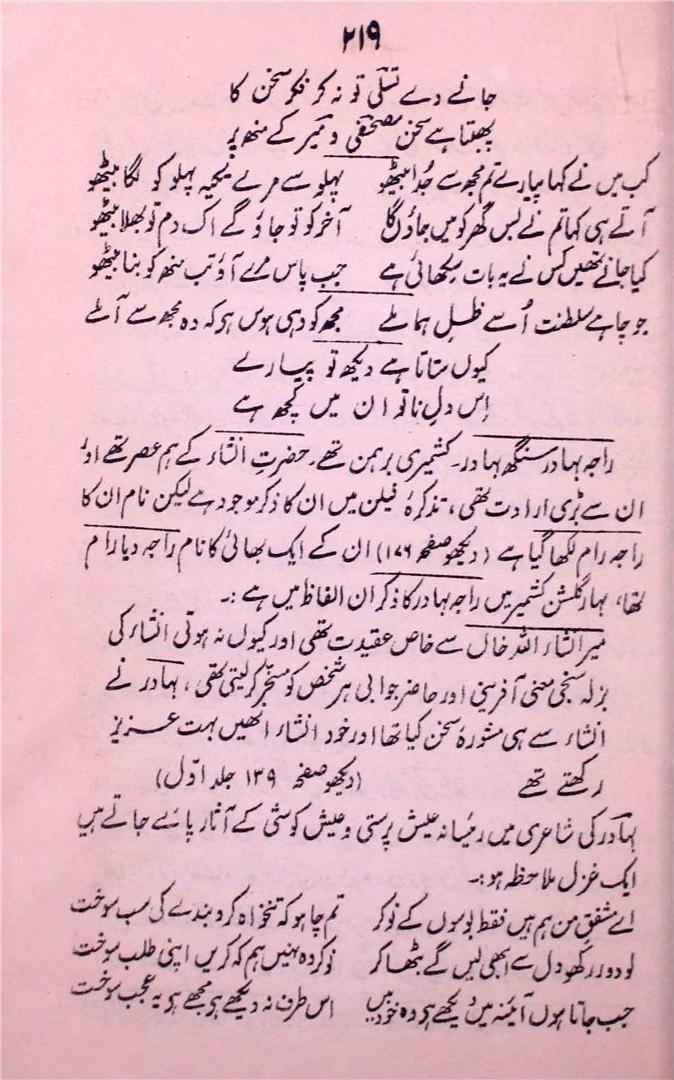 ۲۱۹
جانے دے تسلی تو نہ کر فکر سخن کا
پھبتا ہے سخن مصحفی و میر کے منھ پر
کب میں نے کہا پیارے تم مجھ سے جُدا بیٹھو پہلو سے مرے تکیہ پہلو کو لگا بیٹھو
آتے ہی کہا تم نے بس گھر کو میں جاؤں گا آخر کو تو جاؤ گے اک دم تو بھلا بیٹھو
کیا جانے تمھیں کس نے یہ بات سکھائی ہے جب پاس مرے آؤ تب منھ کو بنا بیٹھو
جو چاہے سلطنت اُسے ظلِ ہما ملے مجھ کو وہی ہوس ہے کہ وہ مجھ سے آ ملے
کیوں ستاتا ہے دیکھ تو پیارے
اِس دلِ ناتواں میں کچھ ہے
راجہ بہادر سنگھ بہادر۔ کشمیری برہمن تھے۔ حضرتِ انشاء کے ہم عصر تھے اور
ان سے بڑی ارادت تھی، تذکرۂ فیلن میں ان کا ذکر موجود ہے لیکن نام ان کا
راجہ رام لکھا گیا ہے (دیکھو صفحہ ۱۷۶) ان کے ایک بھائی کا نام راجہ دیا رام
تھا، بہار گلشن کشمیر میں راجہ بہادر کا ذکر ان الفاظ میں ہے :۔
میر انشاء اللہ خاں سے خاص عقیدت تھی اور کیوں نہ ہوتی انشاء کی
بزلہ سنجی معنی آفرینی اور حاضر جوابی ہر شخص کو مسخّر کر لیتی تھی، بہادر نے
انشاء سے ہی مشورۂ سخن کیا تھا اور خود انشاء انھیں بہت عزیز
رکھتے تھے (دیکھو صفحہ ۱۳۹ جلد اوّل)
بہادر کی شاعری میں رئیسانہ عیش پرستی و عیش کوشی کے آثار پائے جاتے ہیں
ایک غزل ملاحظہ ہو:۔
اے مشفقِ من ہم ہیں فقط بوسوں کے نوکر تم چاہو کہ تنخواہ کرو بندے کی سب سوخت
لو دو رکھو دل سے ابھی لیں گے بٹھا کر نوکر وہ نہیں ہم کہ کریں اپنی طلب سوخت
جب جاتا ہوں آئینہ میں دیکھے ہی وہ خود بیں اس طرف نہ دیکھے ہی مجھے ہی یہ عجب سوخت